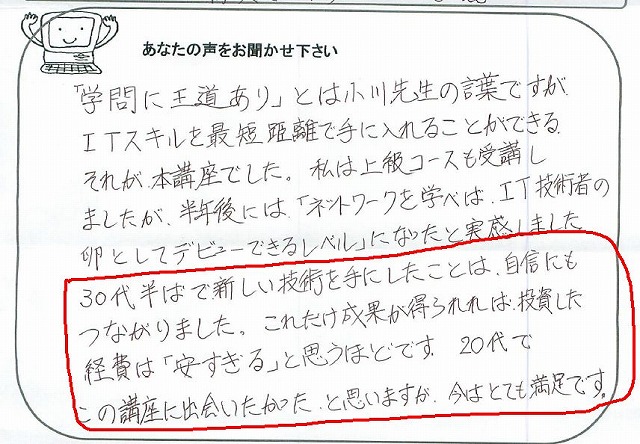 あなたの声をお聞かせ下さい
「学問に王道あり」とは小川先生の言葉ですが
ITスキルを最短距離で手に入れることができる
それが、本講座でした。私は上級コースも受講し
ましたが、半年後には、「ネットワークを学べば、IT技術者の
卵としてデビューできるレベル」になったと実感しました
30代半ばで新しい技術を手にしたことは、自信にも
つながりました。これだけ成果が得られれば、投資した
経費は「安すぎる」と思うほどです。20代で
この講座に出会いたかった、と思いますが、今はとても満足です。